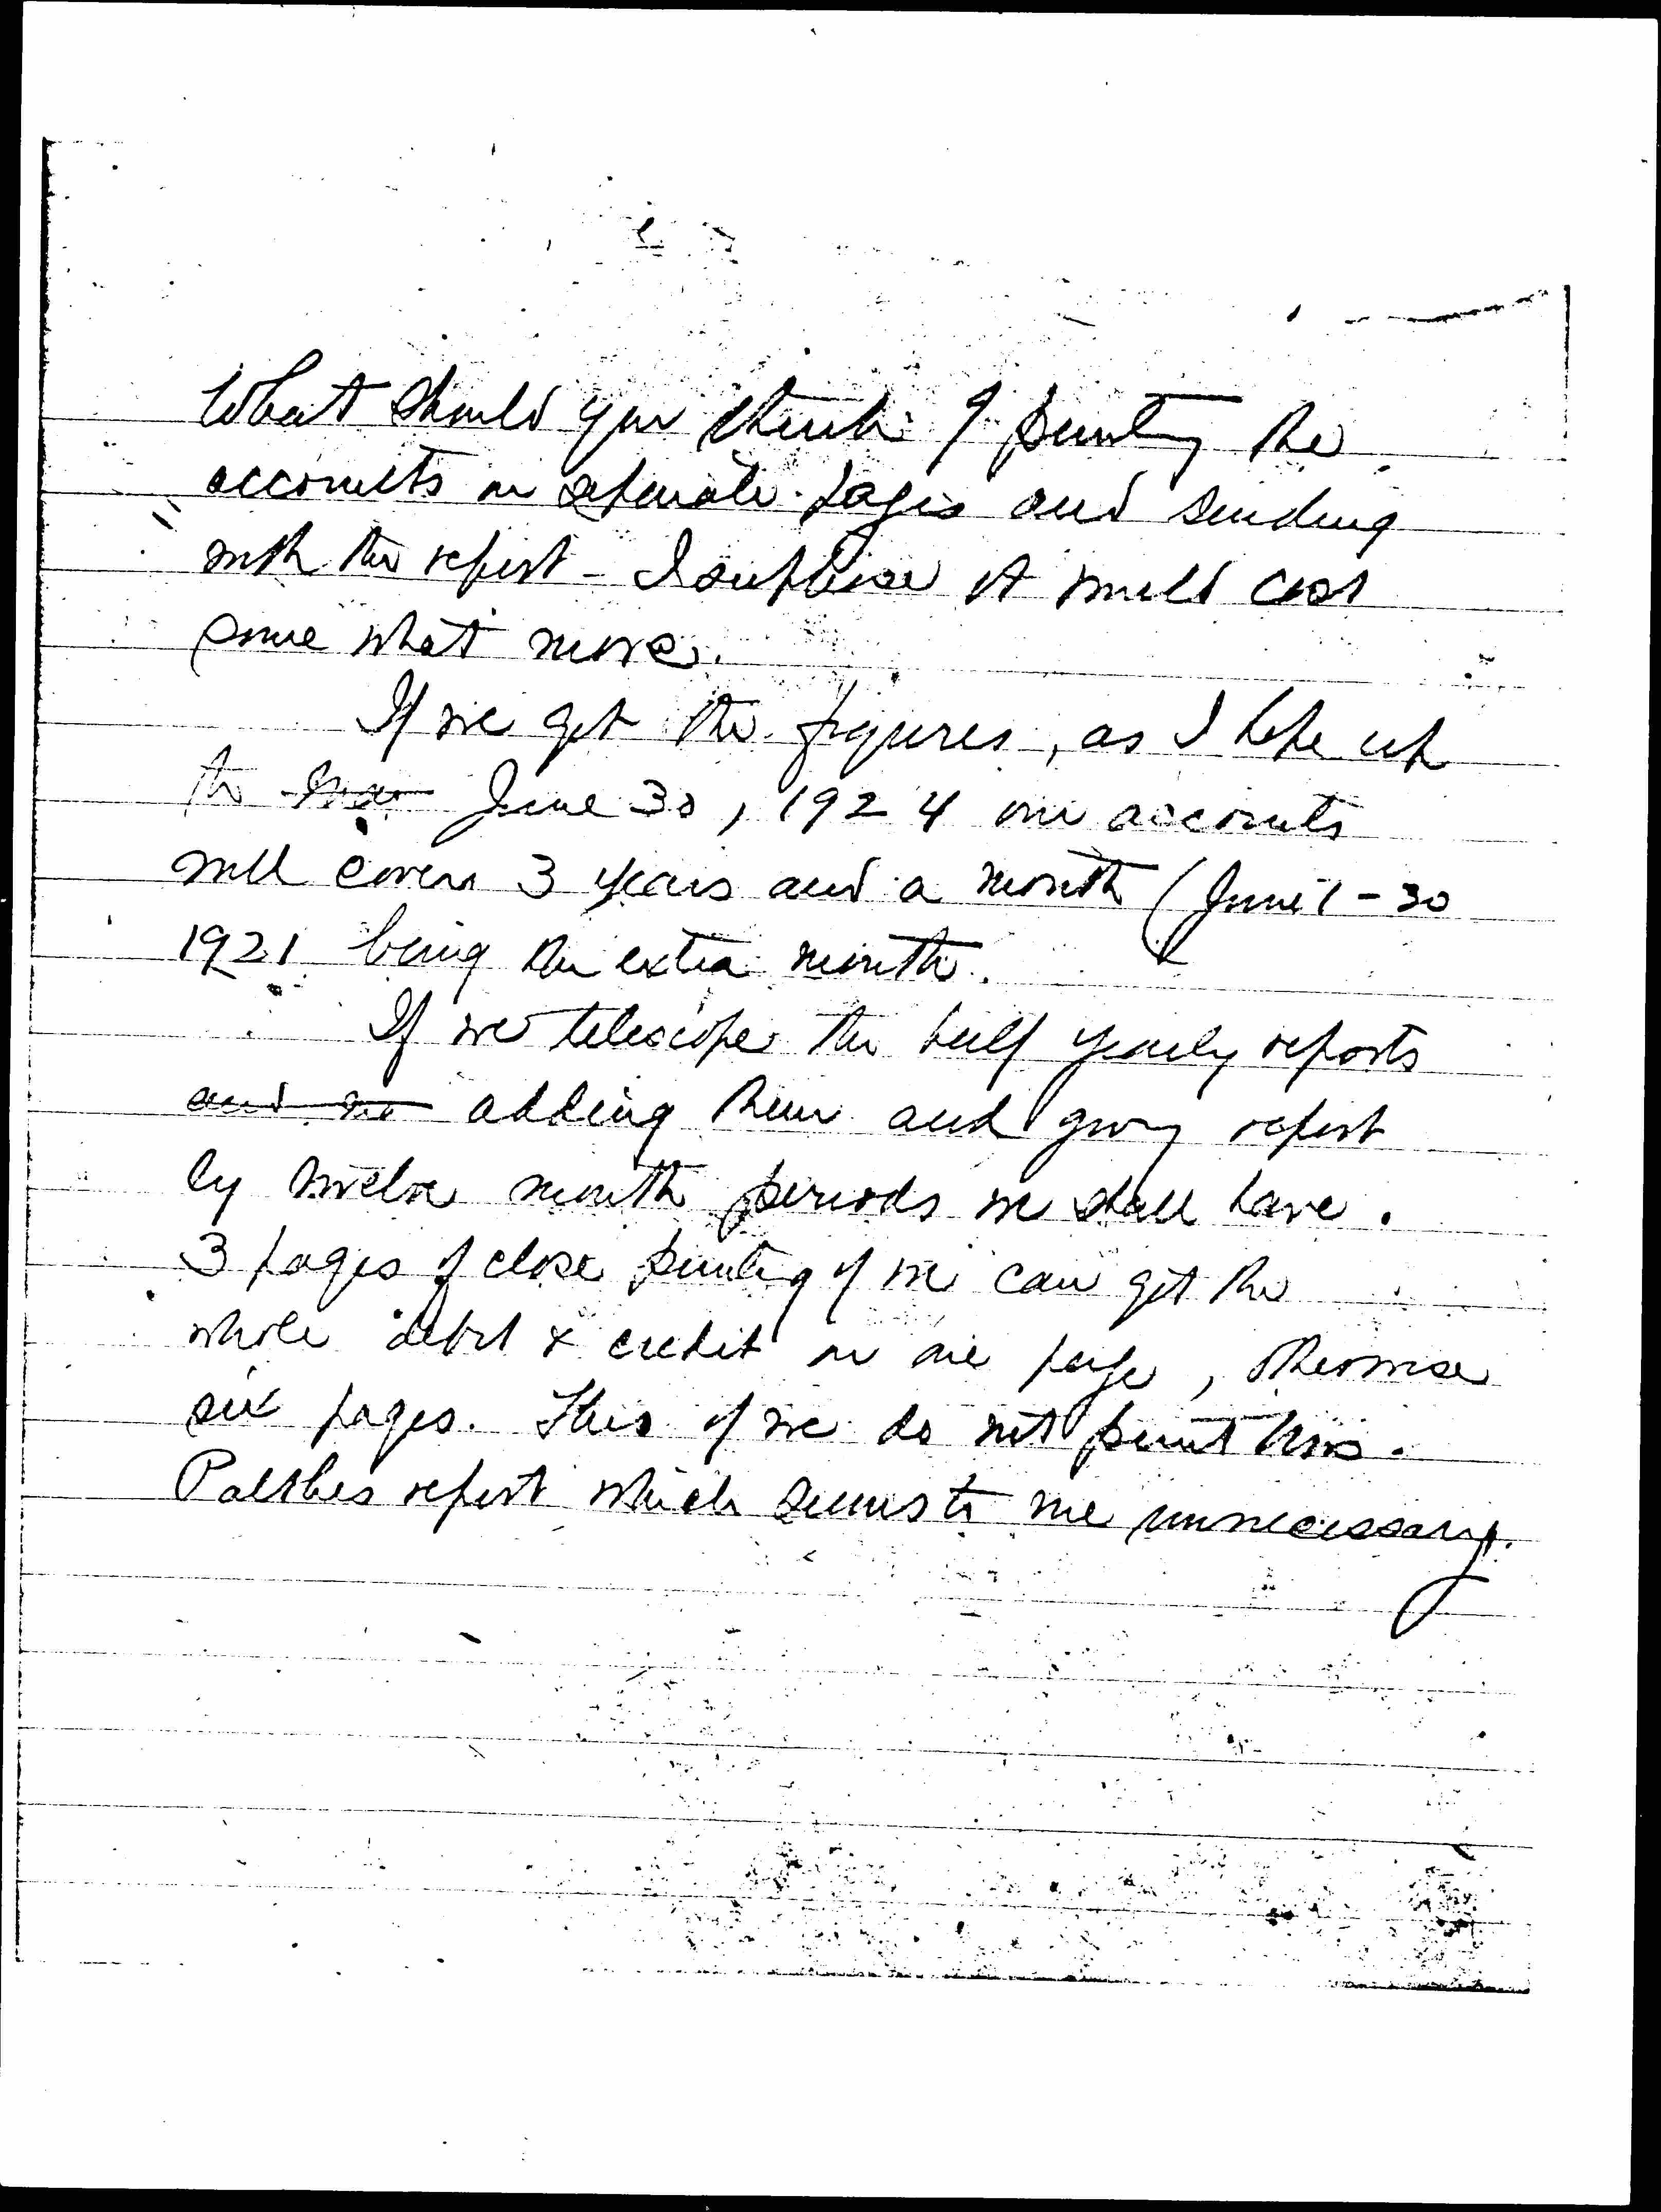 What should you think of printing the
accounts on separate pages and sending
with the report - I suppose it would cost
some what more.
If we get the figures, as I hope up
to June 30, 1924 our accounts
will cover 3 years and a month (June 1 - 30
1921 being the extra month.
If we telescope the half yearly reports
and we adding them and giving report
by twelve month periods we shall have
3 pages of close printing if we can get the
whole debit & credit on one page, otherwise
six pages. This if we do not print Mrs.
report which seems to me unnecessary.